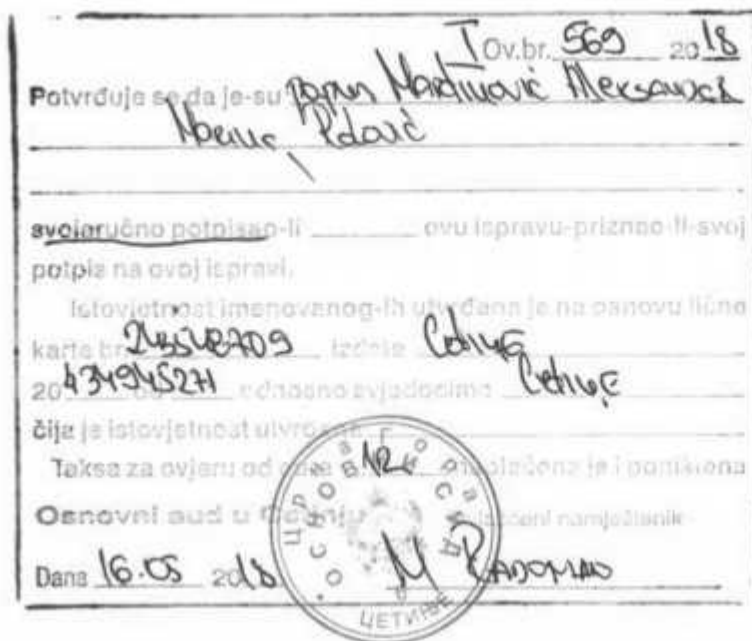 I Ov.br. 569 2018
Potvrđuje se da je-su Martinović
svojeručno potpisao-li ovu ispravu-priznao-li-svoj
potpis na ovoj ispravi.
Istovjetnost imenovanog-ih utvrđena je na osnovu lične
karte br. izdate Cetinje
20 od odnosno svjedocima Cetinje
čija je istovjetnost utvrđena
Taksa za ovjeru od naplaćena je i poništena
Osnovni sud u Cetinju Ovlašćeni namještenik
Dana 16.05 2018 M
Црна Гора
ОСНОВНИ СУД
ЦЕТИЊЕ